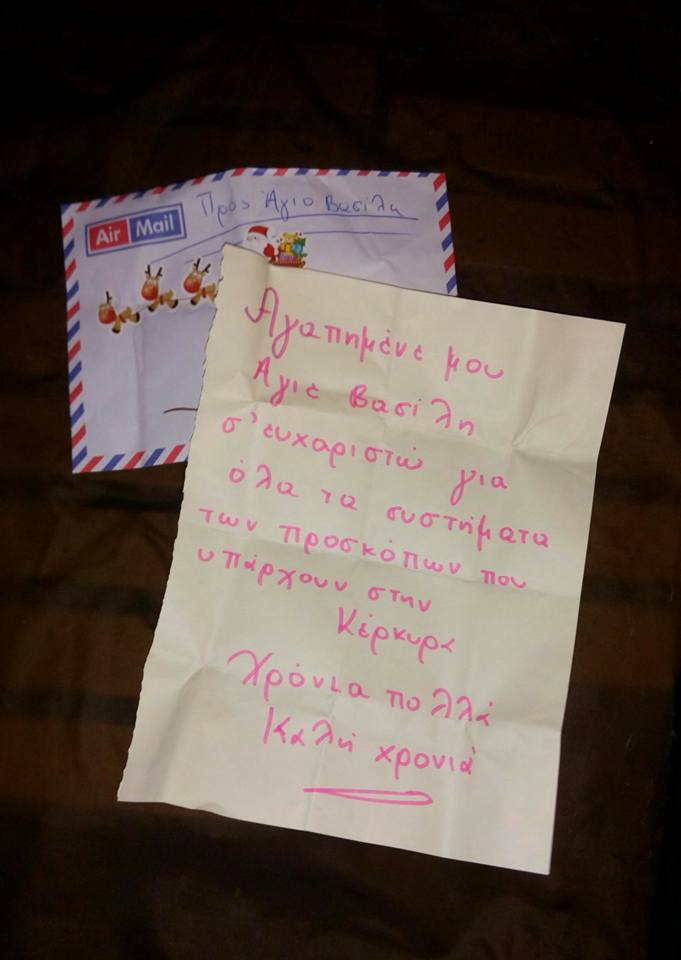 Air Mail
Προς Άγιο Βασίλη
Αγαπημένε μου
Αγιε Βασίλη
σ'ευχαριστώ για
όλα τα συστήματα
των προσκόπων που
υπάρχουν στην
Κέρκυρα
Χρόνια πολλά
Καλή χρονιά